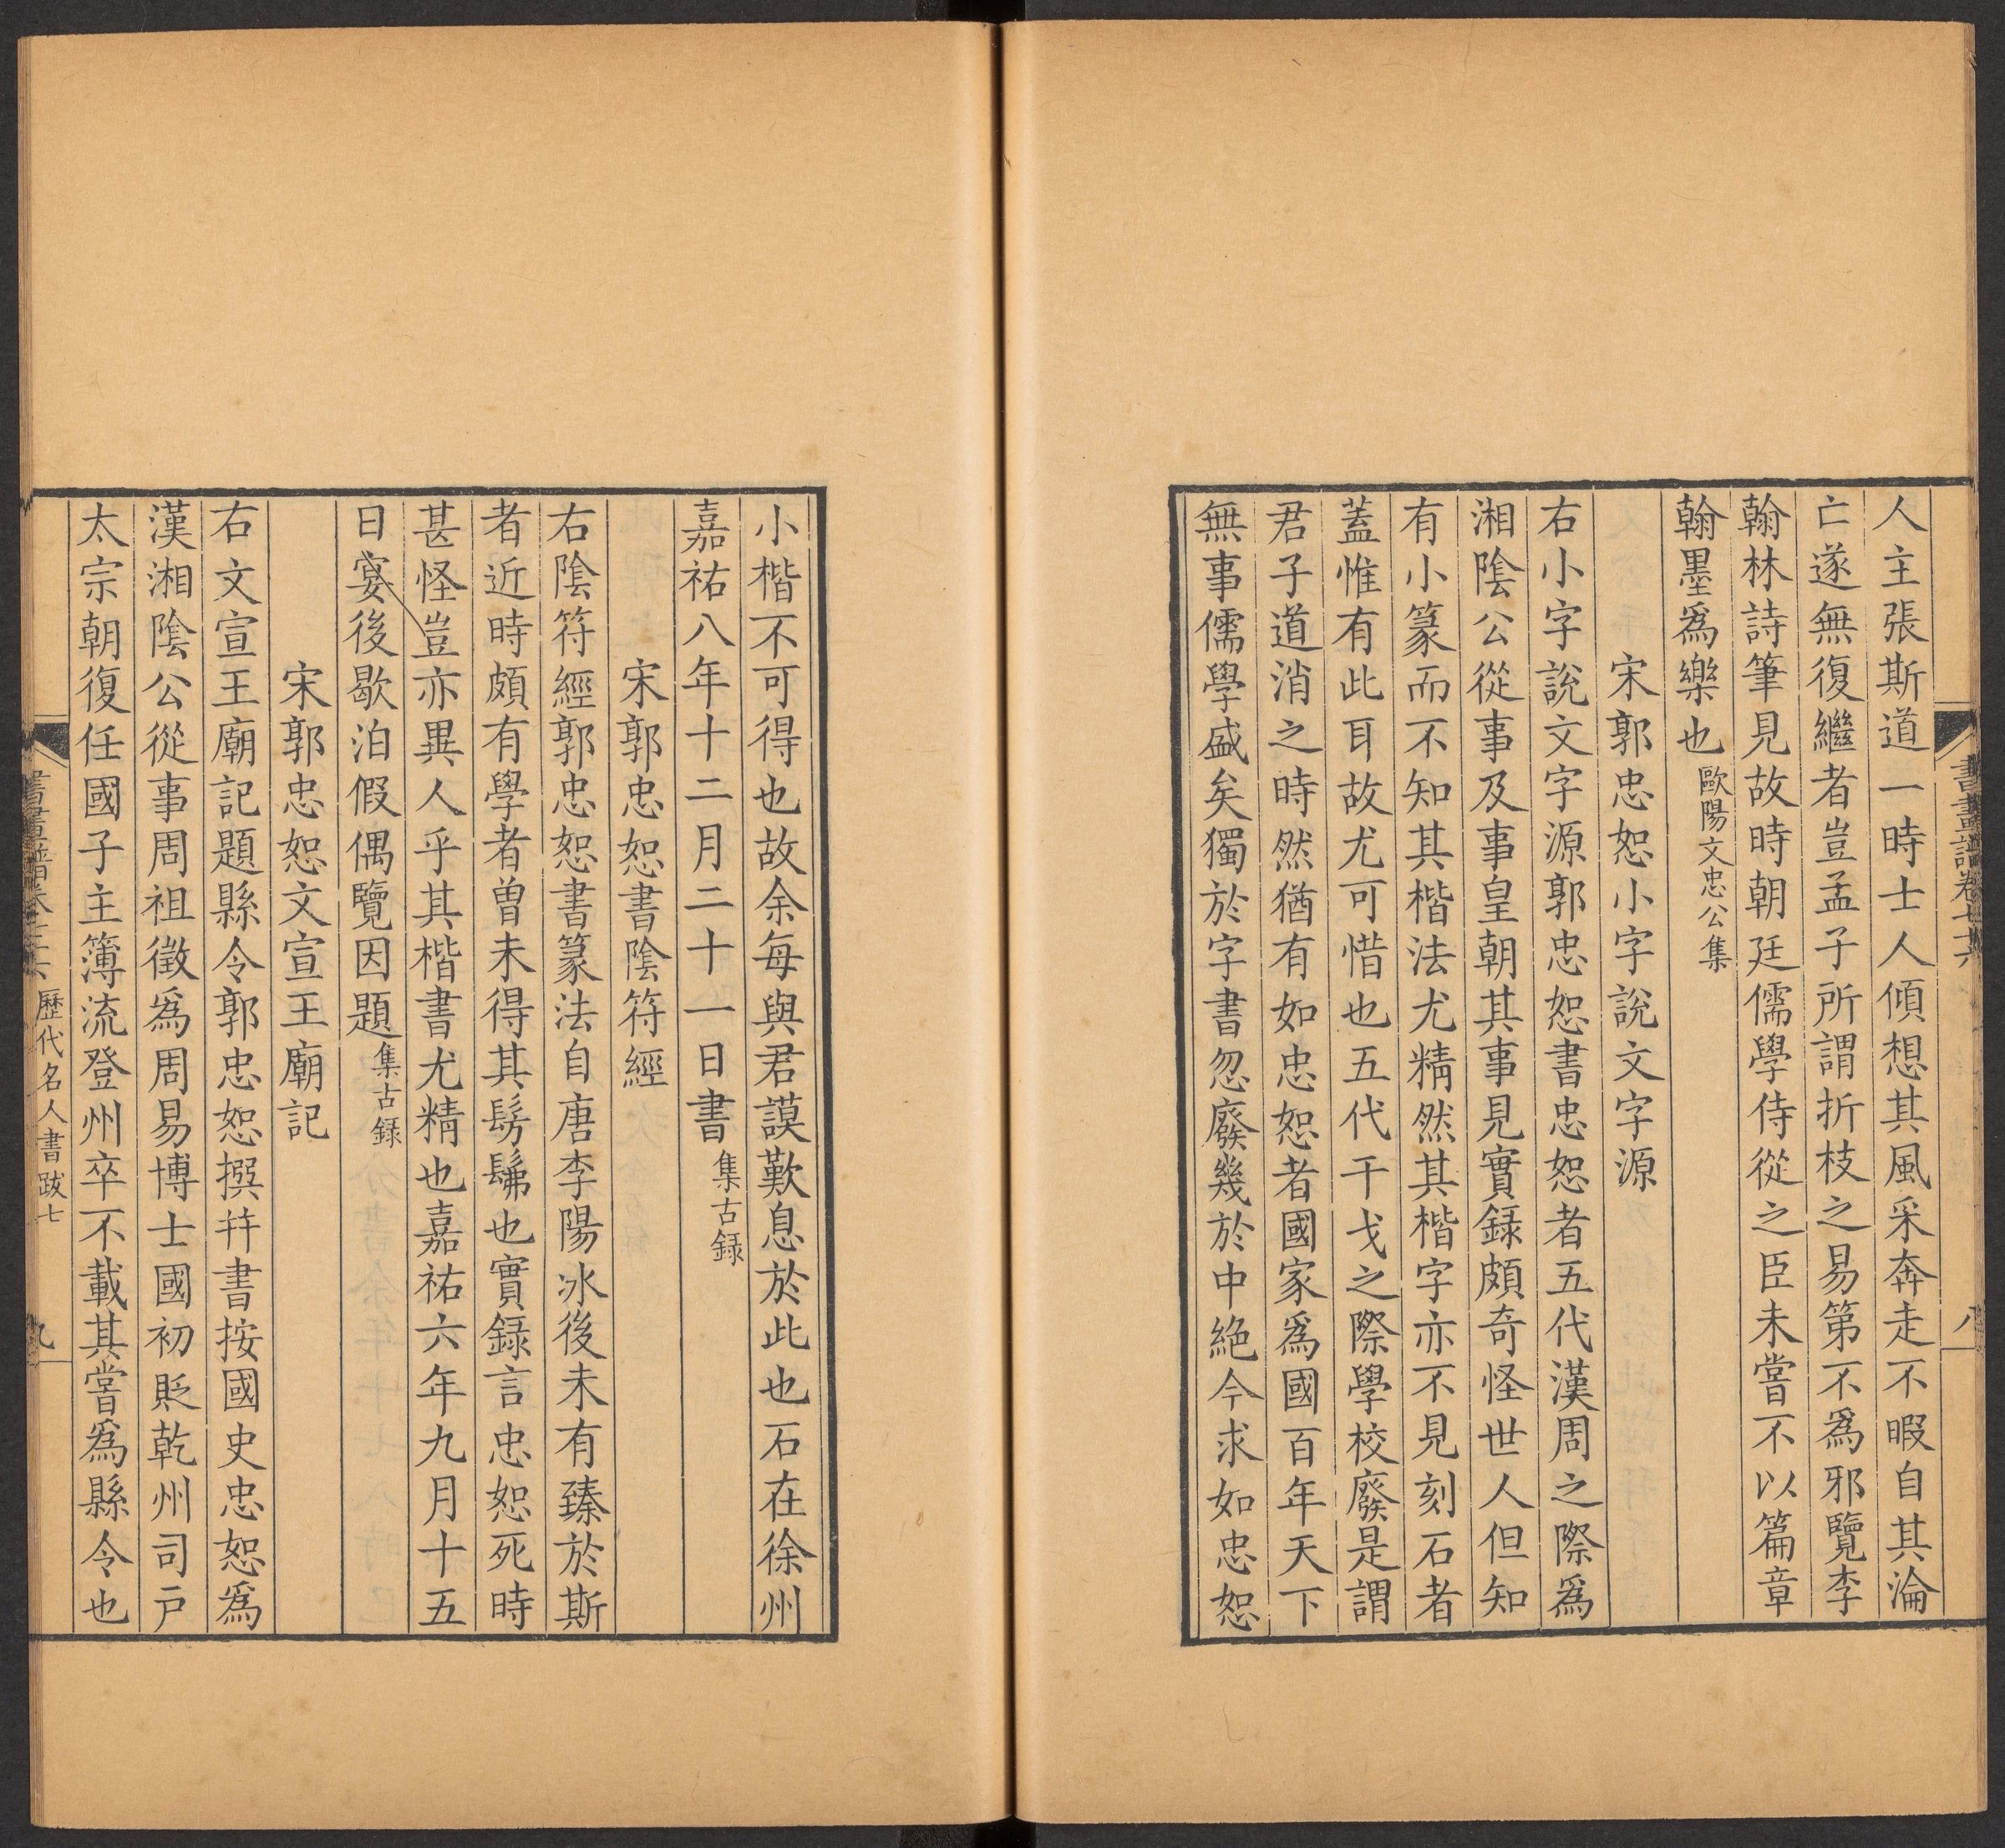 書畫譜卷七十六
八
人主張斯道一時士人傾想其風采奔走不暇自其淪
亡遂無復繼者豈孟子所謂折枝之易第不爲邪覽李
翰林詩筆見故時朝廷儒學侍從之臣未嘗不以篇章
翰墨爲樂也歐陽文忠公集
宋郭忠恕小字說文字源
右小字說文字源郭忠恕書忠恕者五代漢周之際爲
湘陰公從事及事皇朝其事見實録頗奇怪世人但知
有小篆而不知其楷法尤精然其楷字亦不見刻石者
蓋惟有此耳故尤可惜也五代干戈之際學校廢是謂
君子道消之時然猶有如忠恕者國家爲國百年天下
無事儒學盛矣獨於字書忽廢幾於中絶今求如忠恕
小楷不可得也故余每與君謨歎息於此也石在徐州
嘉祐八年十二月二十一日書集古録
宋郭忠恕書陰符經
右陰符經郭忠恕書篆法自唐李陽冰後未有臻於斯
者近時頗有學者曾未得其髣髴也實録言忠恕死時
甚怪豈亦異人乎其楷書尤精也嘉祐六年九月十五
日宴後歇泊假偶覽因題集古録
宋郭忠恕文宣王廟記
右文宣王廟記題縣令郭忠恕撰幷書按國史忠恕爲
漢湘陰公從事周祖徵爲周易博士國初貶乾州司戸
太宗朝復任國子主簿流登州卒不載其嘗爲縣令也
歷代名人書跋七
九